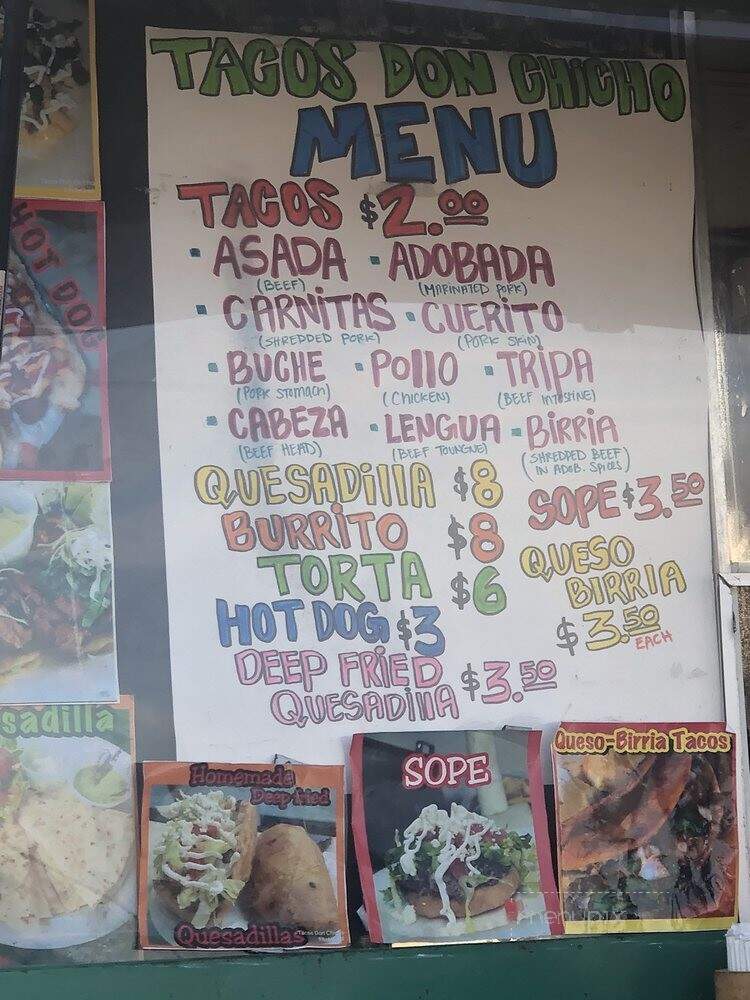 TACOS DON CHICHO
MENU
TACOS $2.00
• ASADA • ADOBADA
(BEEF) (MARINATED PORK)
• CARNITAS • CUERITO
(SHREDDED PORK) (PORK SKIN)
• BUCHE • POllO • TRIPA
(PORK STOMACH) (CHICKEN) (BEEF INTESTINE)
• CABEZA • LENGUA • BIRRIA
(BEEF HEAD) (BEEF TOUNGUE) (SHREDDED BEEF
IN ADOB. SPICES)
QUESADIllA $8
SOPE $3.50
BURRITO $8
TORTA $6
QUESO
BIRRIA
$3.50
EACH
HOT DOG $3
DEEP FRIED
QUESADIllA $3.50
HOT DOG
sadilla
Homemade
Deep fried
Quesadillas
SOPE
Queso-Birria Tacos
menupix